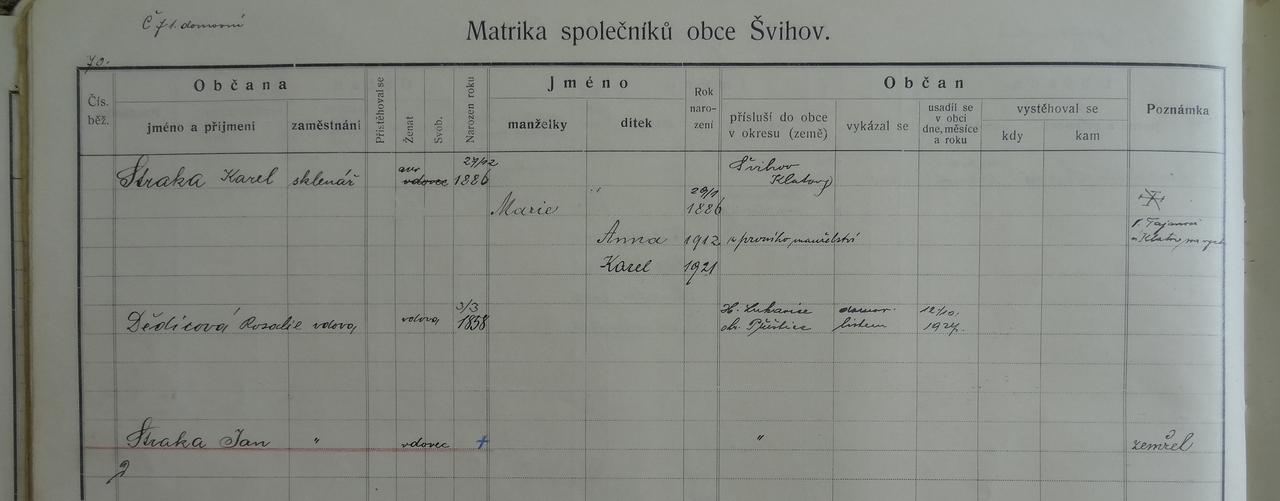 Č 71. domovní
Matrika společníků obce Švihov.
70.
Čís. běž.
Občana
jméno a příjmení
zaměstnání
Přistěhoval se
Ženat
Svob.
Narozen roku
Jméno
manželky
dítek
Rok naro- zení
Občan
přísluší do obce v okresu (země)
vykázal se
usadil se v obci dne, měsíce a roku
vystěhoval se
kdy
kam
Poznámka
27/12 Švihov
Straka Karel sklenář vdovec 1886 Klatovy
29/1
Marie " 1886
Anna 1912 z prvního manželství
Karel 1921
3/3 H. Lukavice domov. 12/10.
Dědicová Rosalie vdova vdova 1858 ok. Přeštice listem 1927.
Straka Jan " vdovec + " zemřel